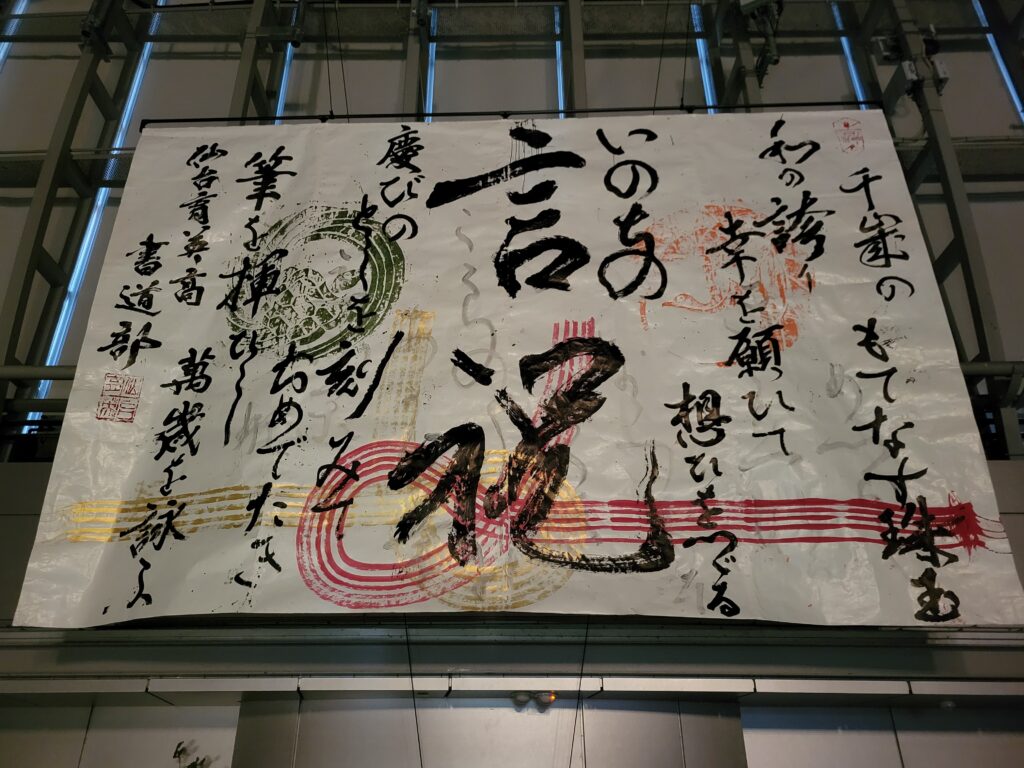 千歳の もてなす珠玉
和の誇り
幸を願ひて
想ひをつづる
いのちの
言祝
慶びの
としを刻みて
おめでたき
筆を揮ひし
萬歳を詠ふ
仙台育英高
書道部